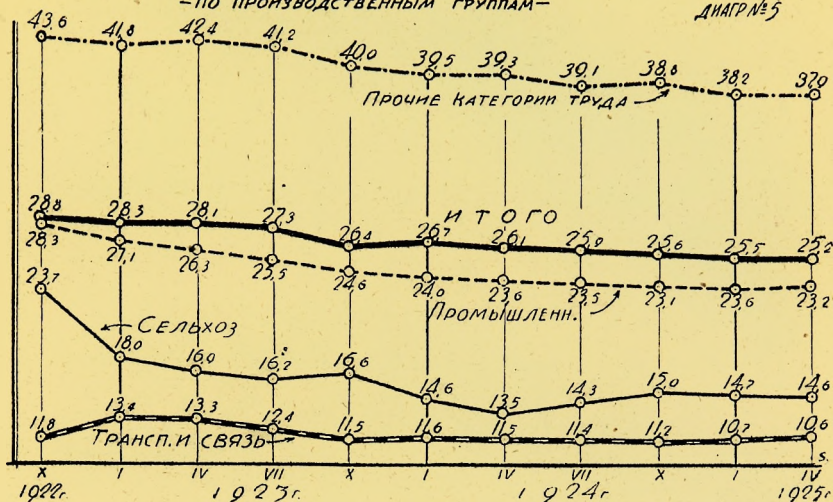 — ПО ПРОИЗВОДСТВЕННЫМ ГРУППАМ —
ДИАГР № 5
43,6 41,8 42,4 41,2 40,0 39,5 39,3 39,1 38,8 38,2 37,9
ПРОЧИЕ КАТЕГОРИИ ТРУДА
28,8 28,3 28,1 27,3 26,4 26,7 26,1 25,9 25,6 25,5 25,2
ИТОГО
28,3 27,1 26,3 25,5 24,6 24,0 23,6 23,5 23,1 23,6 23,2
ПРОМЫШЛЕНН.
23,7 18,0 16,0 16,2 16,6 14,6 13,5 14,3 15,0 14,7 14,6
СЕЛЬХОЗ
11,8 13,4 13,3 12,4 11,5 11,6 11,5 11,4 11,2 10,7 10,6
ТРАНСП. И СВЯЗЬ
S.
X I IV VII X I IV VII X I IV
1922г. 1923г. 1924г. 1925г.